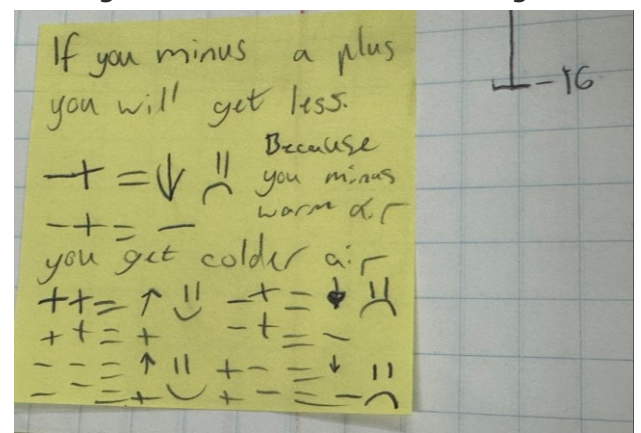 If you minus a plus
you will get less.
-+ = ↓ ☹ Because
you minus
warm air
-+ = -
you get colder air
++= ↑ ☺ -+= ↓ ☹
++= + -+= -
--= ↑ ☺ +-= ↓ ☹
--= + +-= -
-16